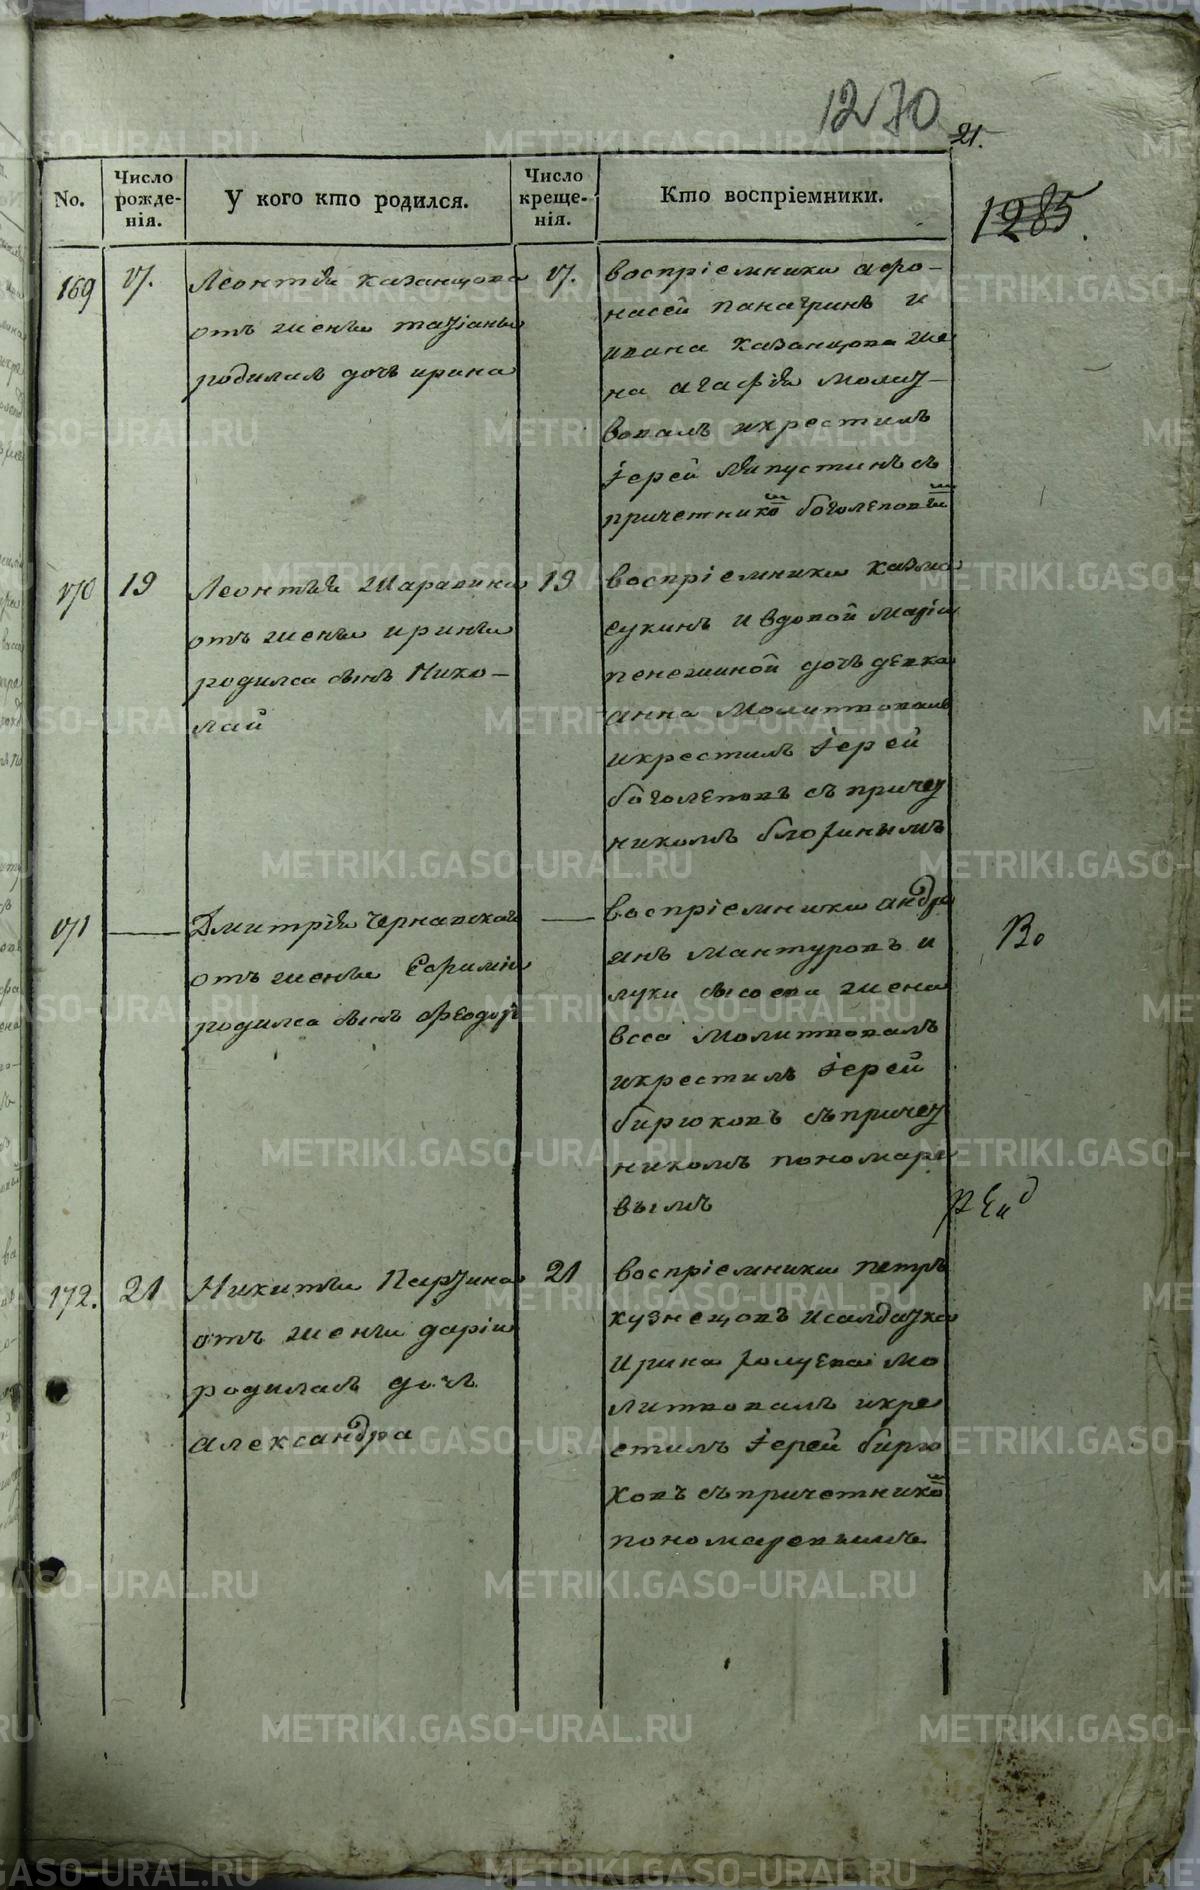 1270
21.
1285.
No.
Число рожде-нія.
У кого кто родился.
Число креще-нія.
Кто воспріемники.
169
17.
Леонтія казанцова
отъ жены татіаны
родилась дочь ирина
17.
воспріемники афо-
насей паначинъ и
ивана казанцова же
на агафія молит-
вовалъ икрестилъ
іерей ляпустинъ съ
причетнико боголеповы
170
19
Леонтія Шарапина
отъ жены ирины
родилса сынъ Нико-
лай
19
воспріемники казма
сукинъ и вдовой маріи
пенежиной дочь девка
анна Молитвовалъ
икрестилъ іерей
боголеповъ съ причет
никомъ блогинымъ
171
Дмитрія Чернавскаго
отъ жены Ефиміи
родилса сынъ Феодоръ
воспріемники андре
янъ Мантуровъ и
луки сысоева жена
васса Молитвовалъ
икрестилъ іерей
бирюковъ съпричет
никомъ пономаре
вымъ
Во
172.
21
Никиты
отъ жены даріи
родилась дочь
Александра
21
воспріемники петръ
кузнецовъ исалдатка
Ирина голуева мо
литвовалъ икре
стилъ іерей бирю
ковъ съпричетнико
пономаревымъ
METRIKI.GASO-URAL.RU